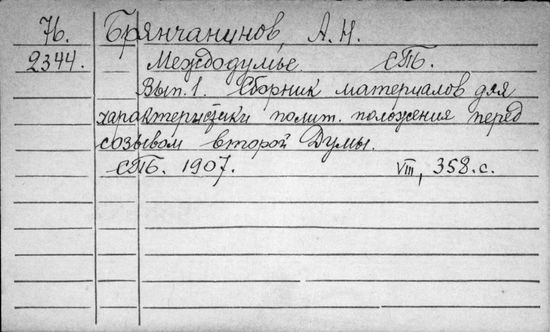 76. Брянчанинов, А. Н.
2344. Междодумье. СПБ.
Вып. 1. Сборник материалов для
характеристики полит. положения перед
созывом второй Думы.
СПБ. 1907. VIII, 358 с.